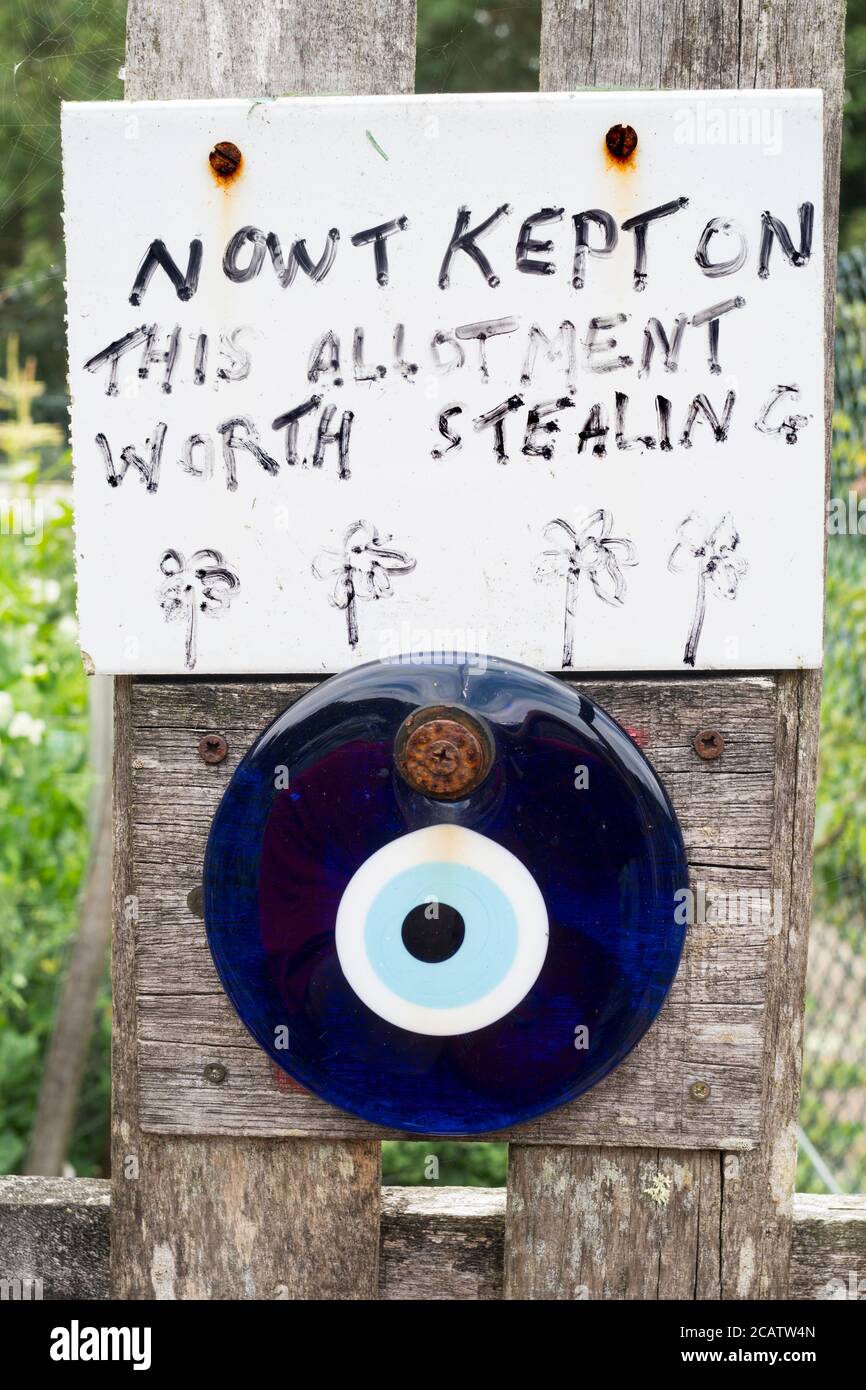 NOWT KEPT ON
THIS ALLOTMENT
WORTH STEALING
alamy
alamy
Image ID: 2CATW4N
www.alamy.com